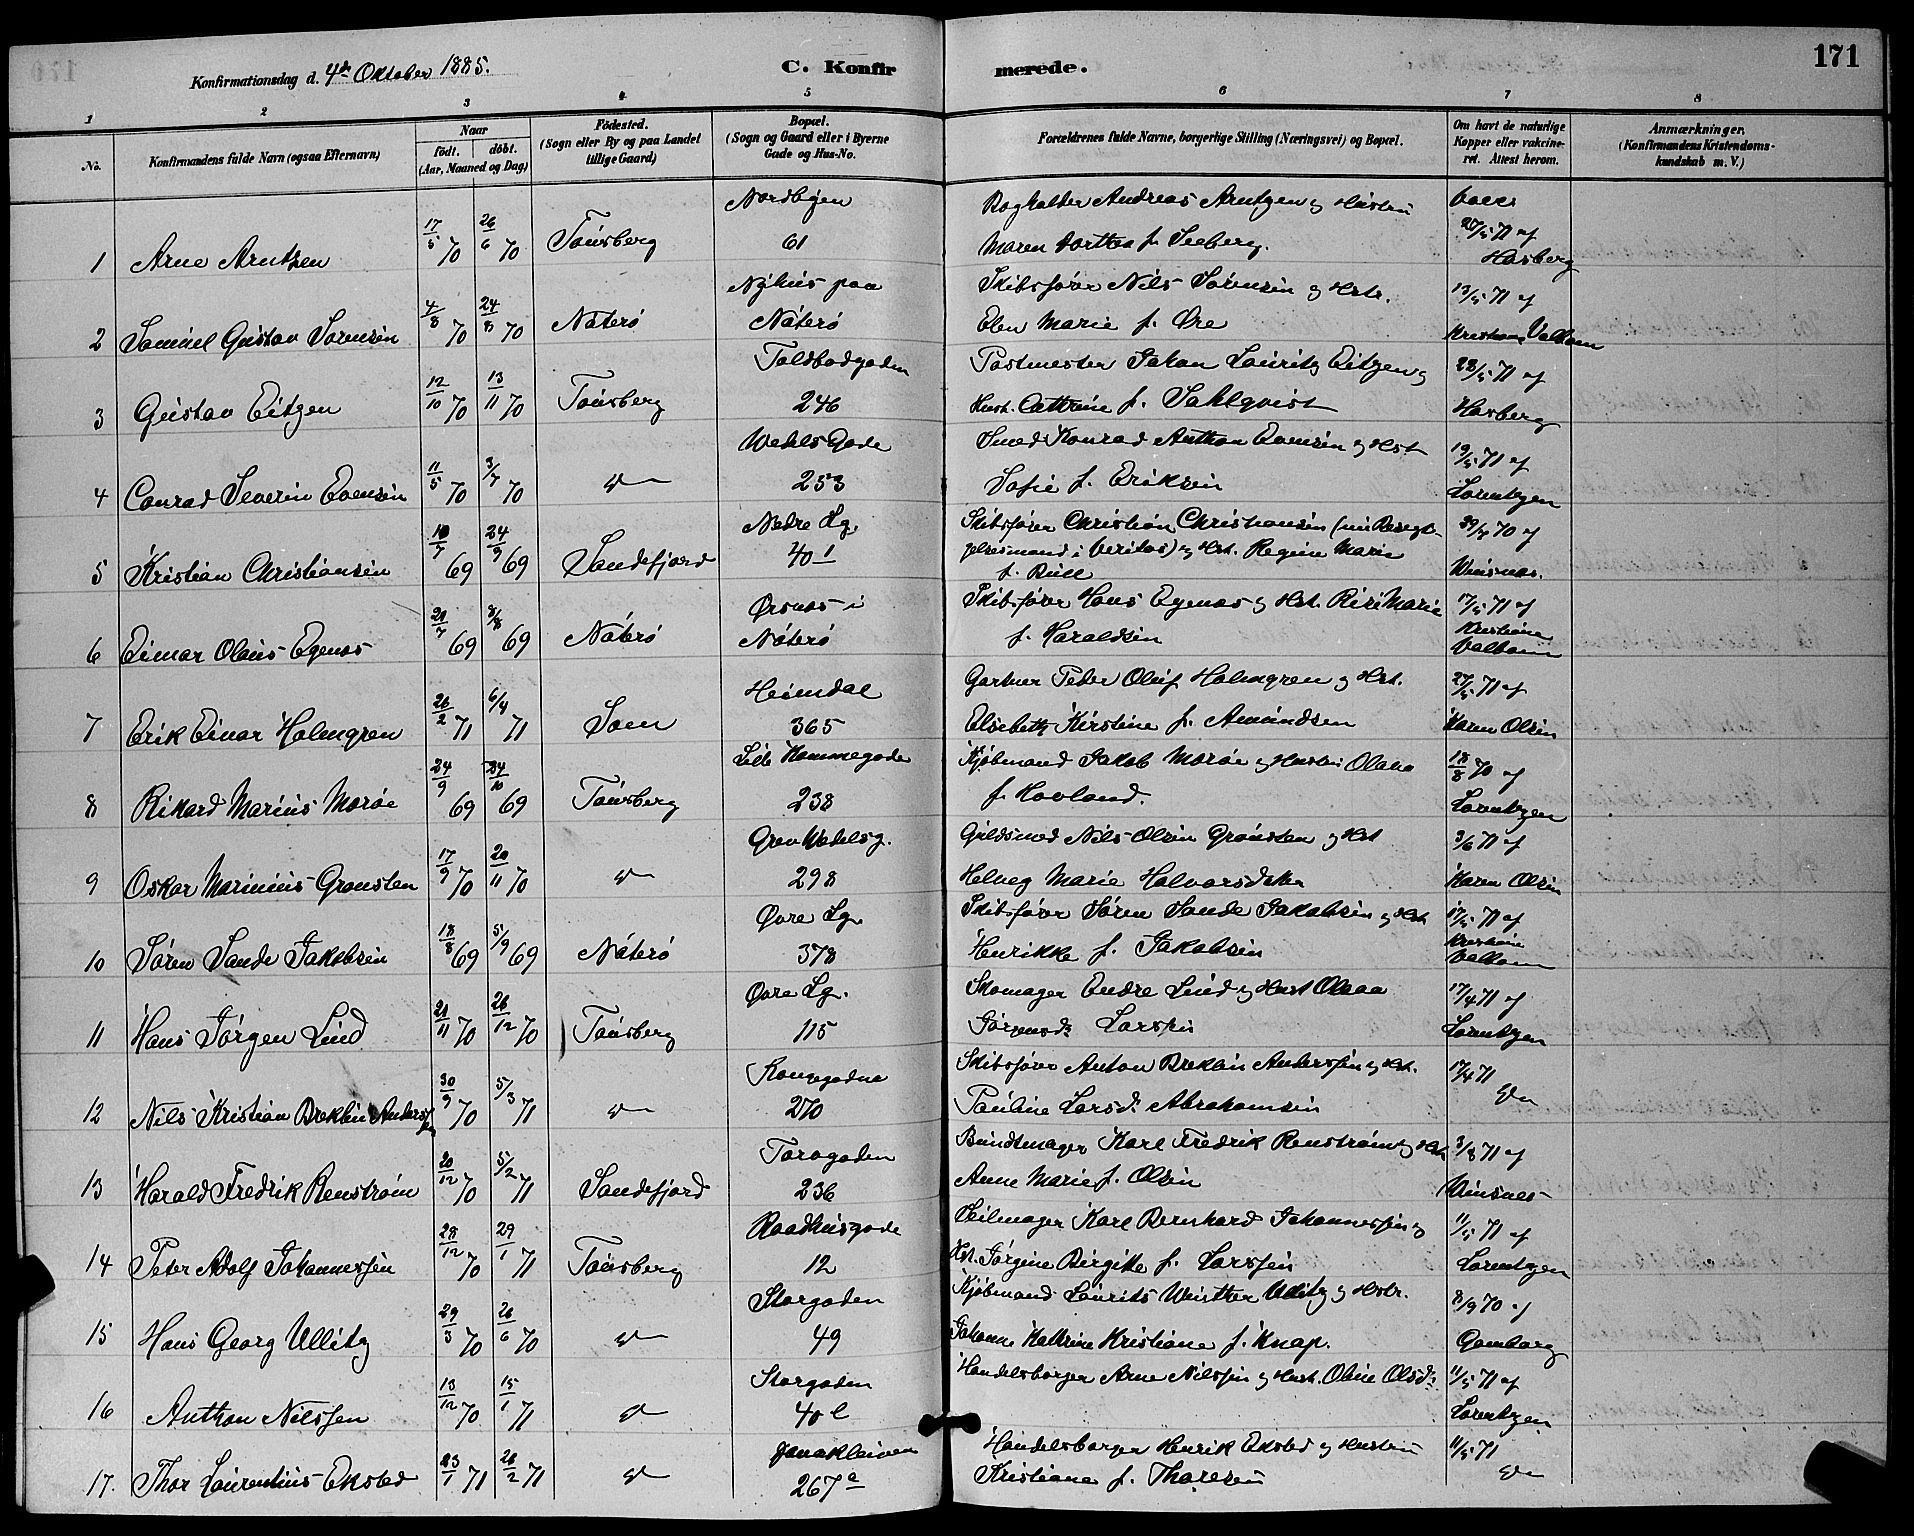 171
Konfirmationsdag d. 4de Oktober 1885.
C. Konfirmerede.
1 2 3 4 5 6 7 8
No.
Konfirmandens fulde Navn (ogsaa Efternavn)
Naar
født. døbt.
(Aar, Maaned og Dag)
Fødested.
(Sogn eller By og paa Landet
tillige Gaard)
Bopæl.
(Sogn og Gaard eller i Byerne
Gade og Hus-No.
Forældrenes fulde Navne, borgerlige Stilling (Næringsvei) og Bopæl.
Om havt de naturlige
Kopper eller vakcine-
ret. Attest herom.
Anmærkninger.
(Konfirmandens Kristendoms-
kundskab m. V.)
Nordbyen Boghalder Andreas Arntzen og Hustru
1 Arne Arntzen 17/5 70 26/6 70 Tønsberg 61 Maren Dorthea f. Seeberg. 27/5 71 af Hasberg
Nyhus paa Skibsfører Nils Sørensen og Hstr. 13/5 71 af
2 Samuel Gustav Sørensen 4/8 70 24/8 70 Nøterø Nøterø Elen Marie f. Øre Kristiane Valkam
Toldbodgaden Postmester Johan Lauritz Eitzen og 23/5 71 af
3 Gustav Eitzen 12/10 70 13/11 70 Tønsberg 246 Hust. Cathrine f. Sahlqvist Hasberg
Wedels Gade Smed Konrad Anthon Evensen og Hst 19/5 71 af
4 Conrad Severin Evensen 11/5 70 3/7 70 " 253 Sofie f. Eriksen Lorentzen
Nedre Lg. Skibsfører Christian Christiansen (nu Besigt-
gelsesmand i Veritas) og Hst. Regine Marie
5 Kristian Christiansen 10/7 69 24/9 69 Sandefjord 40 f. Bull
Ørsnes i Skibsfører Hans Egenes og Hst. Risi Marie 17/5 71 af
6 Einar Olaus Egenes 21/7 69 8/8 69 Nøterø Nøterø f. Haraldsen Kristiane Valkam
Heimdal Gartner Peder Oluf Holmgren og Hst. 27/5 71 af
7 Erik Einar Holmgren 26/2 71 6/4 71 Sem 365 Elsebeth Kirstine f. Amundsen Karen Olsen
Lille Hammegade Kjøbmand Jakob Morøe og Hustru Olava 18/8 70 af
8 Rikard Marius Morøe 24/9 69 24/10 69 Tønsberg 238 f. Hovland. Lorentzen
Grev Wedelsg. Guldsmed Nils Olsen Grønsten og Hst 3/6 71 af
9 Oskar Marinius Gronsten 17/9 70 20/11 70 " 298 Helveg Marie Halvorsdatter Karen Olsen
Øvre Lg. Skibsfører Søren Sande Jakobsen og Hst 17/5 71 af
10 Søren Sande Jakobsen 18/8 69 5/9 69 Nøterø 378 Henrikke f. Jakobsen Kristiane Valkam
Øvre Lg. Skomager Endre Lind og Hust Olava 17/4 71 af
11 Hans Jørgen Lind 21/11 70 26/12 70 Tønsberg 115 Jørgensdr Larsen Lorentzen
Kongegaden Skibsfører Anton Breklin Anderssen og Hst. 17/4 71
12 Nils Kristian Breklin Anderssen 30/9 70 5/3 71 " 270 Pauline Larsdr Abrahamsen "
Farvgaden Bundtmager Karl Fredrik Renstrøm og Hst 3/8 71 af
13 Harald Fredrik Renstrøm 20/12 70 5/2 71 Sandefjord 236 Anne Marie f. Olsen
Raadhusgade Seilmager Karl Bernhard Johannessen og 11/5 71 af
14 Peter Adolf Johannessen 28/12 70 29/1 71 Tønsberg 12 Hst. Jørgine Birgitte f. Larssen Lorentzen
Storgaden Kjøbmand Laurits Winther Ullitz og Hstr. 8/9 70 af
15 Hans Georg Ullitz 29/3 70 26/6 70 " 49 Johanne Kathrine Kristiane f. Knap. Gamborg
Storgaden Handelsborger Arne Nilssen og Hust. Oline Olsdr 11/5 71 af
16 Anthon Nilssen 13/12 70 15/1 71 " 40 l Lorentzen
Handelsborger Henrik Eksted og Hustru 11/5 71
17. Thor Laurentius Eksted 23/1 71 26/2 71 " 267 a Kristiane f. Thoresen "